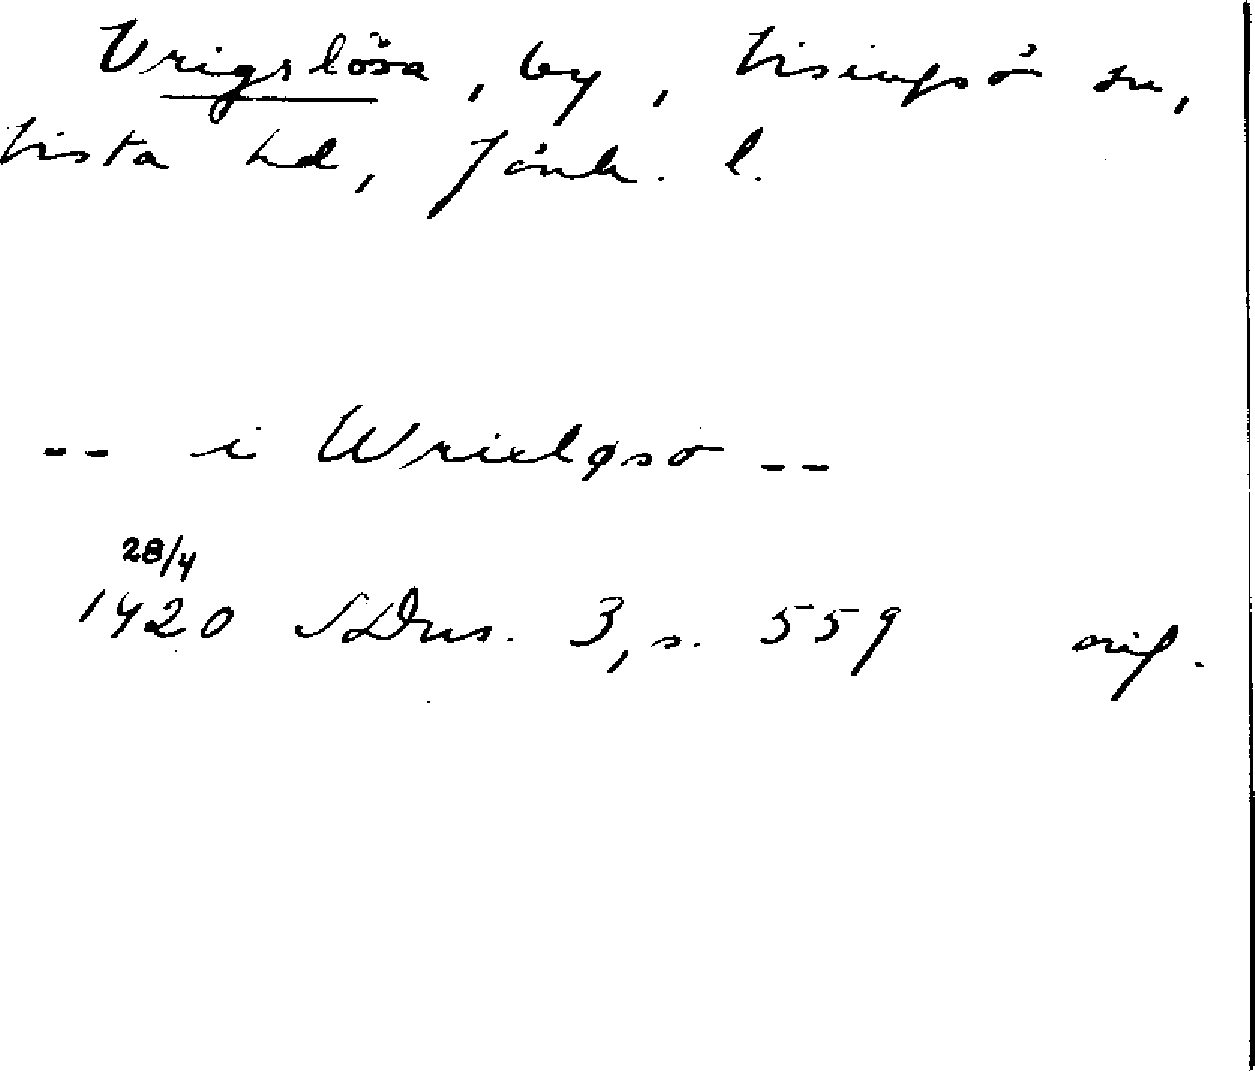 Vrigslösa, by, Visingsö sn,
Vista hd, Jönk. l.
-- i Wrixløso --
28/4
1420 SDns. 3, s. 559 orig.